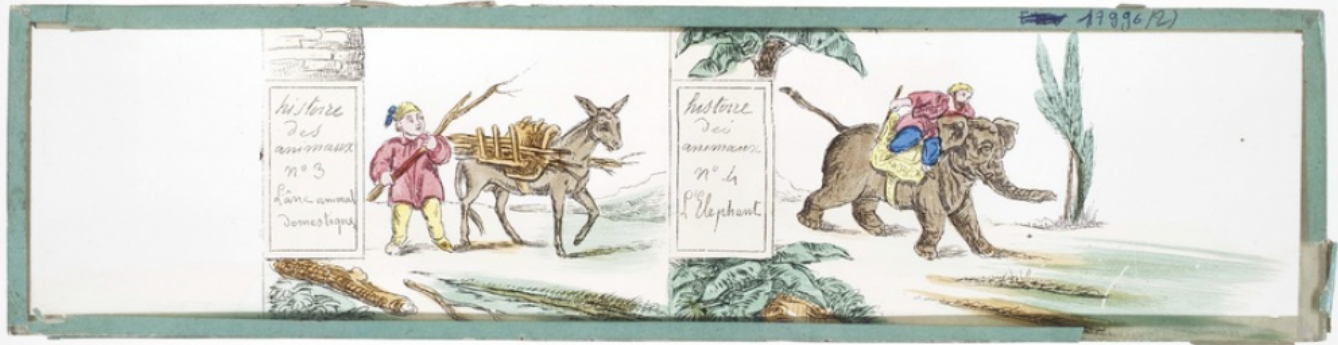 19996(2)
histoire
des
animaux
n° 3
L'âne animal
domestique
histoire
des
animaux
n° 4
L'Elephant